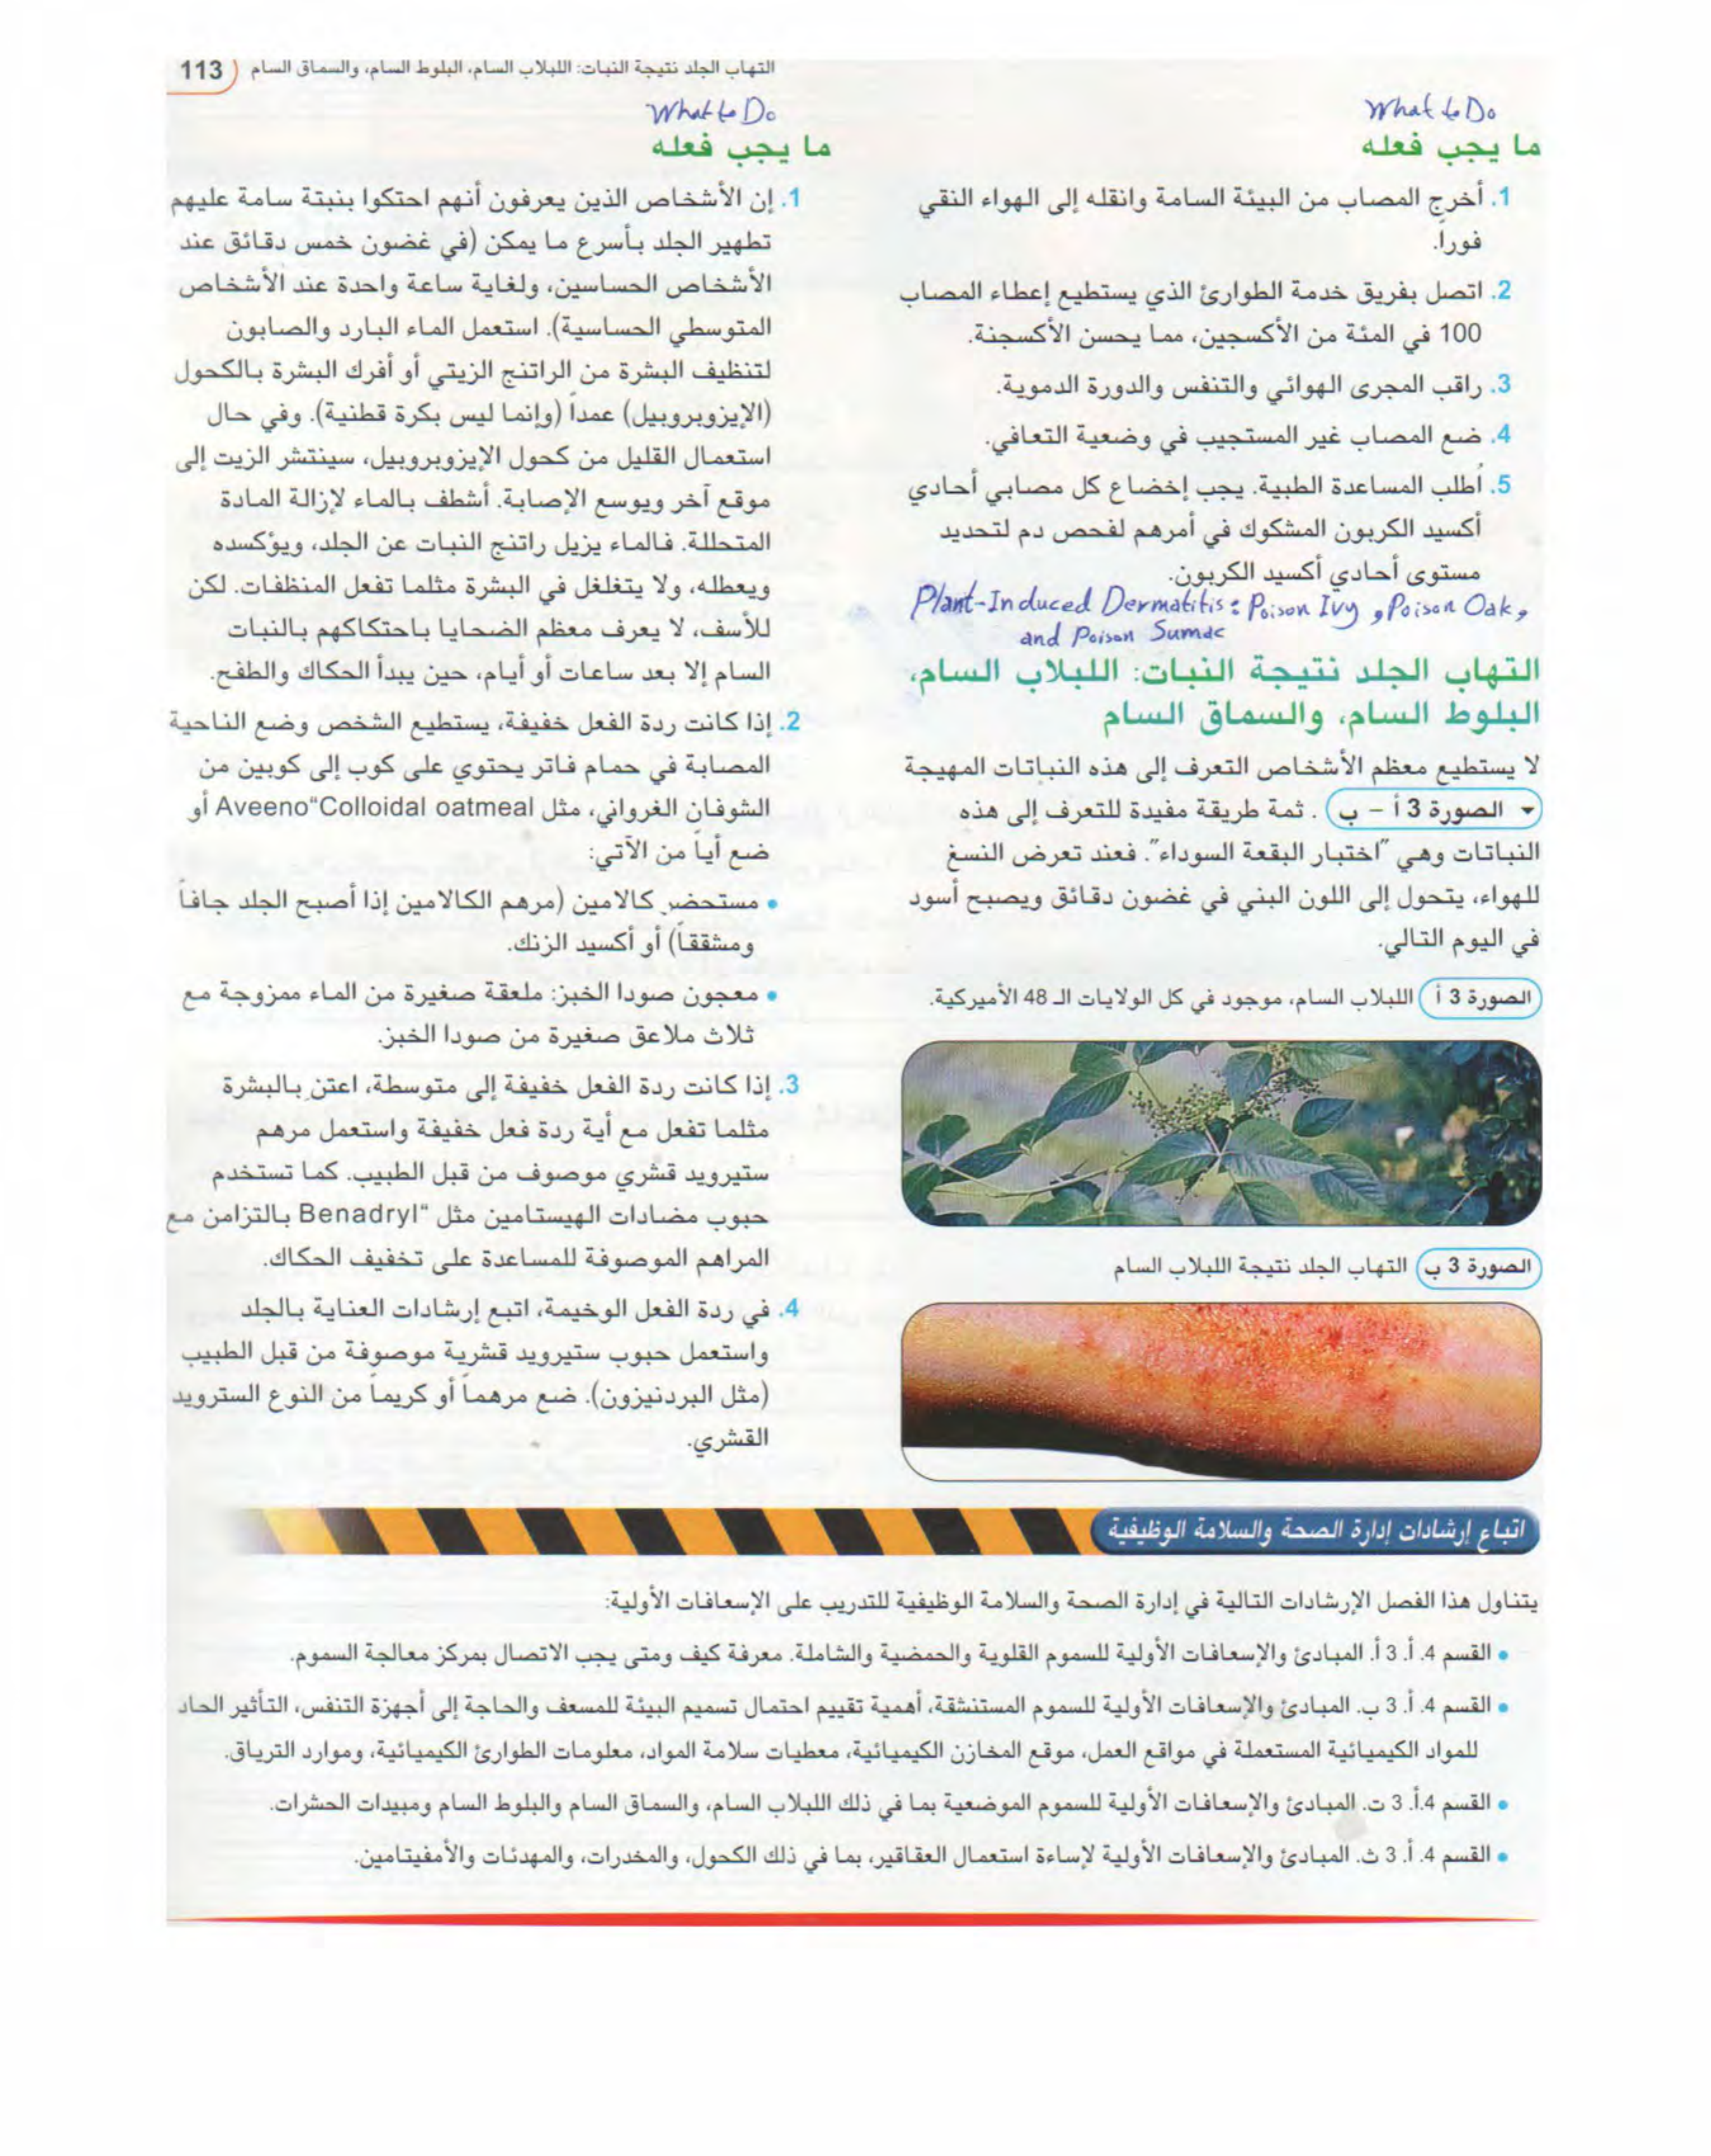 التهاب الجلد نتيجة النبات: اللبلاب السام، البلوط السام، والسماق السام 113
What to Do
ما يجب فعله
1. أخرج المصاب من البيئة السامة وانقله إلى الهواء النقي
فوراً.
2. اتصل بفريق خدمة الطوارئ الذي يستطيع إعطاء المصاب
100 في المئة من الأكسجين، مما يحسن الأكسجنة.
3. راقب المجرى الهوائي والتنفس والدورة الدموية.
4. ضع المصاب غير المستجيب في وضعية التعافي.
5. أُطلب المساعدة الطبية. يجب إخضاع كل مصابي أحادي
أكسيد الكربون المشكوك في أمرهم لفحص دم لتحديد
مستوى أحادي أكسيد الكربون.
Plant-Induced Dermatitis: Poison Ivy, Poison Oak,
and Poison Sumac
التهاب الجلد نتيجة النبات: اللبلاب السام،
البلوط السام، والسماق السام
لا يستطيع معظم الأشخاص التعرف إلى هذه النباتات المهيجة
▾ الصورة 3 أ – ب . ثمة طريقة مفيدة للتعرف إلى هذه
النباتات وهي "اختبار البقعة السوداء". فعند تعرض النسغ
للهواء، يتحول إلى اللون البني في غضون دقائق ويصبح أسود
في اليوم التالي.
الصورة 3 أ اللبلاب السام، موجود في كل الولايات الـ 48 الأميركية.
الصورة 3 ب التهاب الجلد نتيجة اللبلاب السام
What to Do
ما يجب فعله
1. إن الأشخاص الذين يعرفون أنهم احتكوا بنبتة سامة عليهم
تطهير الجلد بأسرع ما يمكن (في غضون خمس دقائق عند
الأشخاص الحساسين، ولغاية ساعة واحدة عند الأشخاص
المتوسطي الحساسية). استعمل الماء البارد والصابون
لتنظيف البشرة من الراتنج الزيتي أو أفرك البشرة بالكحول
(الإيزوبروبيل) عمداً (وإنما ليس بكرة قطنية). وفي حال
استعمال القليل من كحول الإيزوبروبيل، سينتشر الزيت إلى
موقع آخر ويوسع الإصابة. أشطف بالماء لإزالة المادة
المتحللة. فالماء يزيل راتنج النبات عن الجلد، ويؤكسده
ويعطله، ولا يتغلغل في البشرة مثلما تفعل المنظفات. لكن
للأسف، لا يعرف معظم الضحايا باحتكاكهم بالنبات
السام إلا بعد ساعات أو أيام، حين يبدأ الحكاك والطفح.
2. إذا كانت ردة الفعل خفيفة، يستطيع الشخص وضع الناحية
المصابة في حمام فاتر يحتوي على كوب إلى كوبين من
الشوفان الغرواني، مثل Aveeno"Colloidal oatmeal أو
ضع أياً من الآتي:
• مستحضر كالامين (مرهم الكالامين إذا أصبح الجلد جافاً
ومشققاً) أو أكسيد الزنك.
• معجون صودا الخبز: ملعقة صغيرة من الماء ممزوجة مع
ثلاث ملاعق صغيرة من صودا الخبز.
3. إذا كانت ردة الفعل خفيفة إلى متوسطة، اعتن بالبشرة
مثلما تفعل مع أية ردة فعل خفيفة واستعمل مرهم
ستيرويد قشري موصوف من قبل الطبيب. كما تستخدم
حبوب مضادات الهيستامين مثل "Benadryl بالتزامن مع
المراهم الموصوفة للمساعدة على تخفيف الحكاك.
4. في ردة الفعل الوخيمة، اتبع إرشادات العناية بالجلد
واستعمل حبوب ستيرويد قشرية موصوفة من قبل الطبيب
(مثل البردنيزون). ضع مرهماً أو كريماً من النوع السترويد
القشري.
اتباع إرشادات إدارة الصحة والسلامة الوظيفية
يتناول هذا الفصل الإرشادات التالية في إدارة الصحة والسلامة الوظيفية للتدريب على الإسعافات الأولية:
• القسم 4. أ. 3 أ. المبادئ والإسعافات الأولية للسموم القلوية والحمضية والشاملة. معرفة كيف ومتى يجب الاتصال بمركز معالجة السموم.
• القسم 4. أ. 3 ب. المبادئ والإسعافات الأولية للسموم المستنشقة، أهمية تقييم احتمال تسميم البيئة للمسعف والحاجة إلى أجهزة التنفس، التأثير الحاد
للمواد الكيميائية المستعملة في مواقع العمل، موقع المخازن الكيميائية، معطيات سلامة المواد، معلومات الطوارئ الكيميائية، وموارد الترياق.
• القسم 4.أ. 3 ت. المبادئ والإسعافات الأولية للسموم الموضعية بما في ذلك اللبلاب السام، والسماق السام والبلوط السام ومبيدات الحشرات.
• القسم 4. أ. 3 ث. المبادئ والإسعافات الأولية لإساءة استعمال العقاقير، بما في ذلك الكحول، والمخدرات، والمهدئات والأمفيتامين.